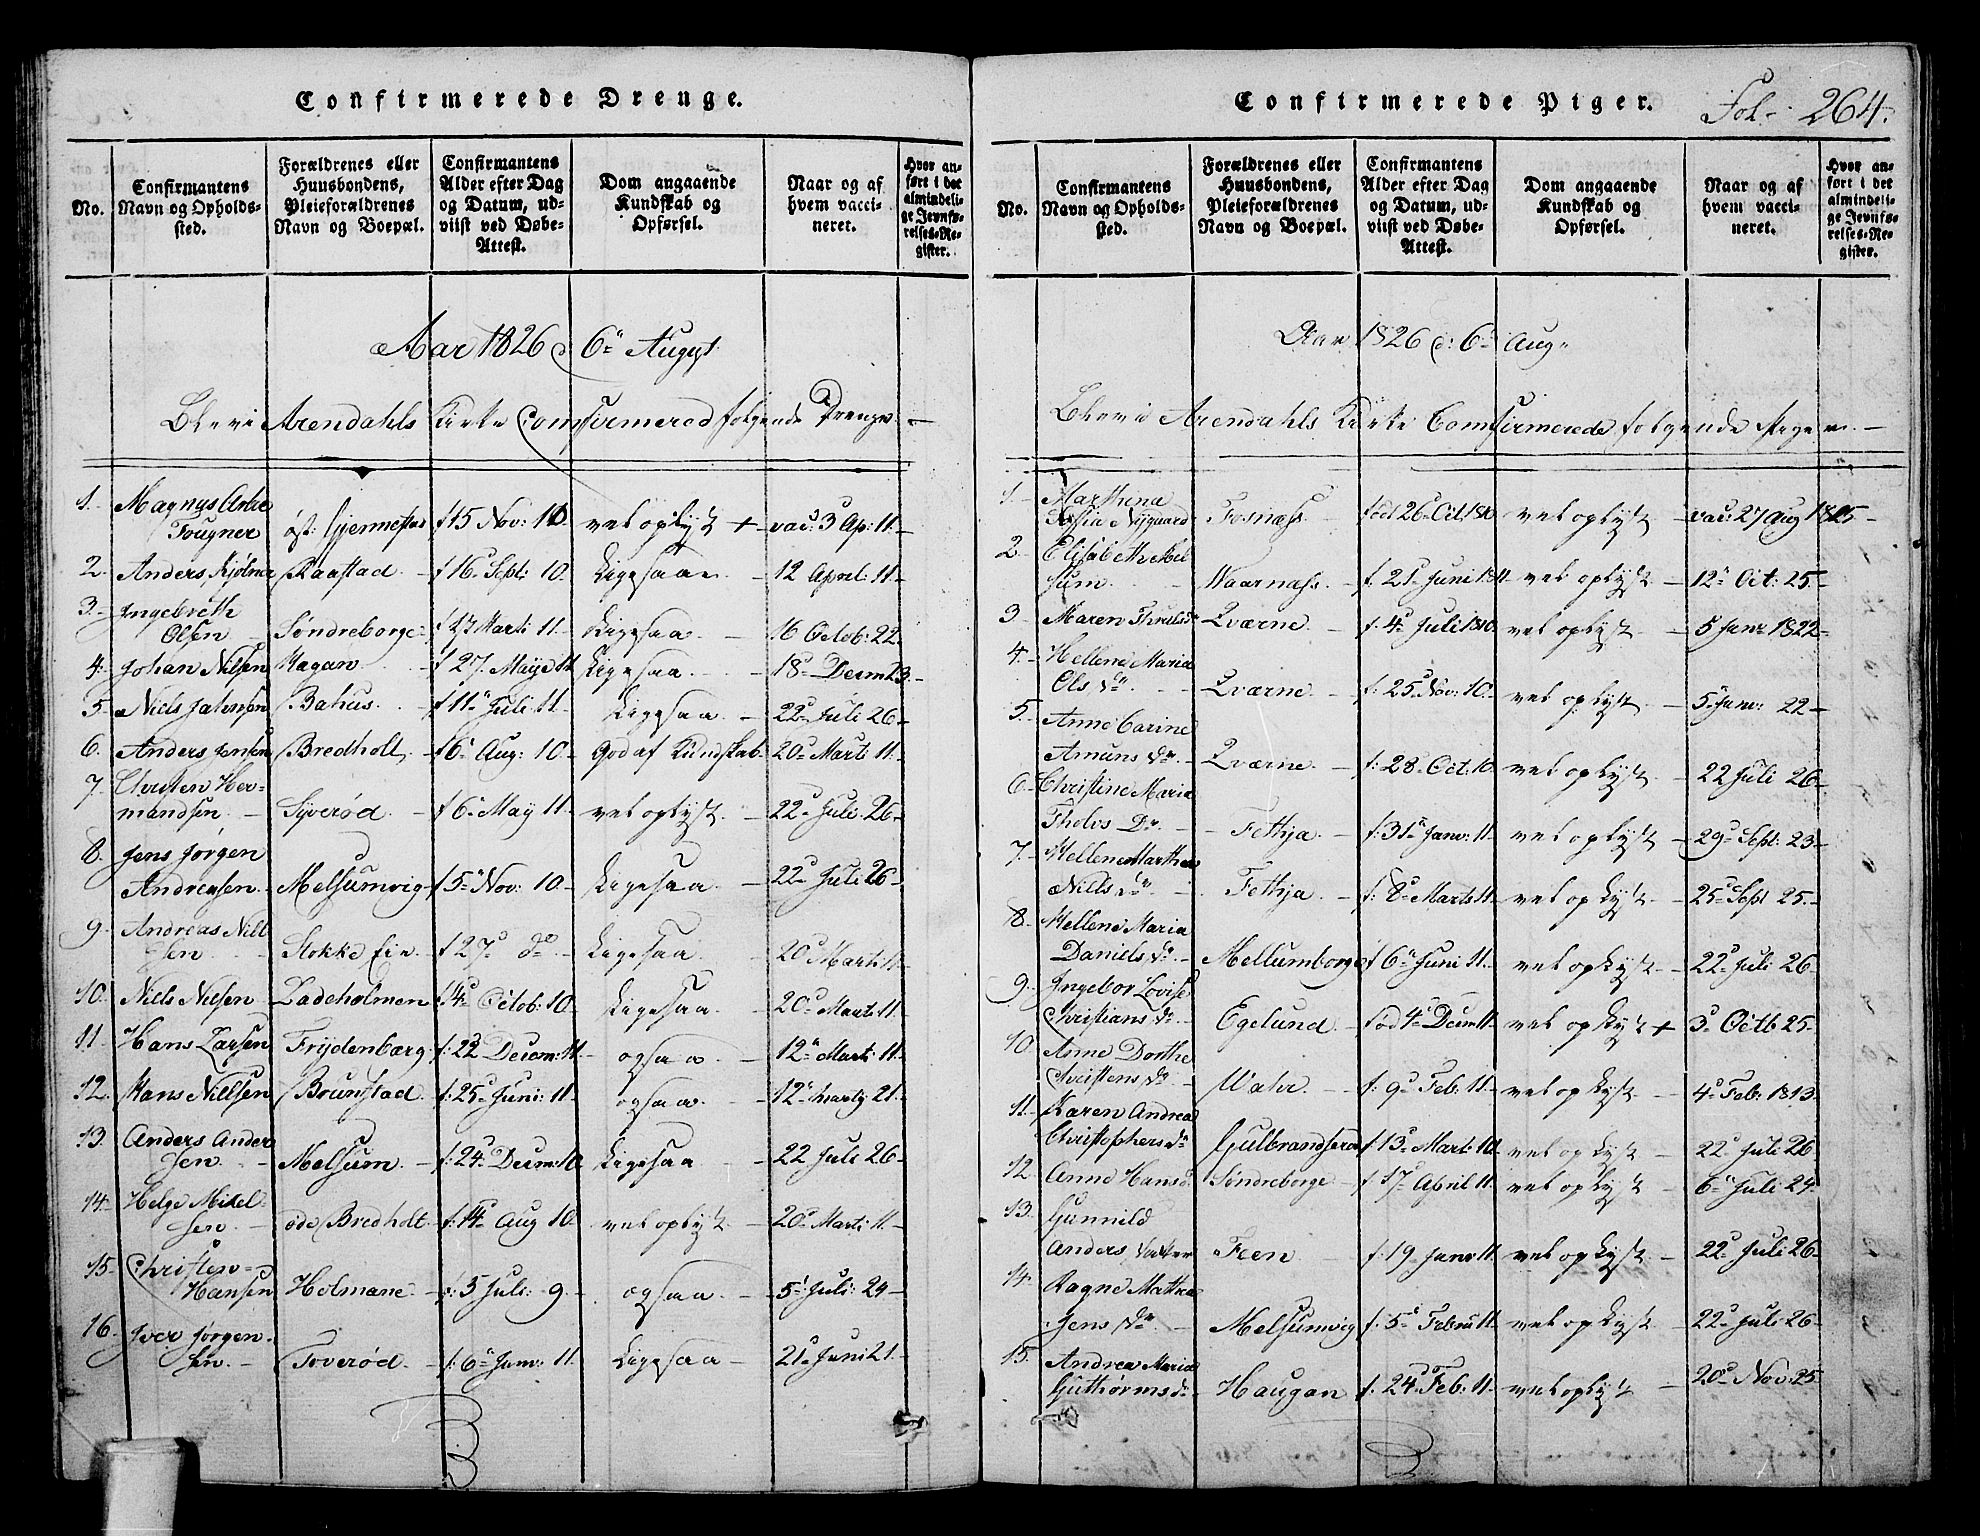 Confirmerede Drenge.
No.
Confirmantens Navn og Opholds-sted.
Forældrenes eller Huusbondens, Pleieforældrenes Navn og Boepæl.
Confirmantens Alder efter Dag og Datum, ud-viist ved Døbe-Attest.
Dom angaaende Kundskab og Opførsel.
Naar og af hvem vacci-neret.
Hvor an-ført i det almindeli-ge Jevnfø-relses-Re-gister.
Aar 1826 d 6te August
Blev i Arendahls Kirke Confirmered følgende Drenge. —
1. Magnus
Fougner øst: Gjennestad f 15 Nov: 10 vel oplyst + vac: 3 Ap: 11.
2. Anders Kjølner Raastad f 16 Sept: 10. Ligesaa. 12 April: 11
3. Ingebreth
Olsen Søndreborge f 27 Marti 11. Ligesaa. 16 Octob: 22
4. Johan Nilsen Hagan f 27. Maije 11 Ligesaa. 18 Decm 23.
5. Niels Jahnsen Bahus. f 11 Juli 11. Ligesaa 22 Juli 26
6. Anders Jensen Bredholt, f 6 Aug: 10. God af Kundskab. 20 Marti 11
7. Christen Her-
mandsen. Syverød. f 6 May 11. vel oplyst. 22 Juli: 26
8. Jens Jørgen
Andreasen. Melsumvig f 5 Nov: 10. Ligesaa 22 Juli 26
9. Andreas Nill
sen Stokke Ein f 27 do Ligesaa 20 Marti 11
10. Niels Nielsen Ladeholmen f 4 Octob: 10. Ligesaa 20 Marti 11.
11. Hans Larsen Frydenbærg f: 22 Decom: 11 ogsaa 12 Marti: 11.
12. Hans Nillsen Brunstad. f: 25 Juni: 11. ogsaa 12 Martz 21.
13. Anders Ander
sen Melsum. f: 24 Decm: 10. Ligesaa 22 Juli 26
14. Helge Mikel-
sen. øde Bredholt. f: 14 Aug 10. vel oplyst 20 Marti 11
15. Christen
Hansen Holmane f: 5 Juli: 9 ogsaa 5 Juli: 24
16. Iver Jørgen-
sen. Toverød. f: 6 Janv: 11. Ligesaa 21 Juni 21.
Confirmerede Piger. Fol: 264.
No.
Confirmantens Navn og Opholds-sted.
Forældrenes eller Huusbondens, Pleieforældrenes Navn og Boepæl.
Confirmantens Alder efter Dag og Datum, ud-viist ved Døbe-Attest.
Dom angaaende Kundskab og Opførsel.
Naar og af hvem vacci-neret.
Hvor an-ført i det almindeli-ge Jevnfø-relses-Re-gister.
Aar 1826 d: 6te Aug.
Blev i Arendahls Kirke Confirmerede følgende Piger. —
1. Marthina
Sofia Nygaard Fosnæss. fød 26 Oct: 1810 vel oplyst vac: 27 Aug 1825
2. Elisabeth Mel
sum Waarnæss. f. 21 Juni 1811 vel oplyst. 12 Oct: 25.
3. Maren Qværne. f. 4 Juli 1810. vel oplyst 5 Janr 1822
4. Hellene Maria
Ols Dr. Qværne. f: 25 Nov: 10. vel oplyst. 5 Janv: 22
5. Anne Carine
Amuns Dr. Qværne. f: 28 Oct: 10 vel oplyst. 22 Juli 26
6. Christine Maria
Dr. Fethja. f: 31 Janv: 11. vel oplyst 29 Sept: 23
7. Hellene Marthea
Niels Dr Fethja. f: 8 Marts 11 vel oplyst. 25 Sept 25.
8. Hellene Maria
Daniels Dr. Mellumborge f 6 Juni 11. vel oplyst 22 Juli 26
9. Ingebor Lovise
Christians Dr Egelund. fød 4 Decm 11. vel oplyst + 3 Octb 25
10. Anne Dorthe
Christens Dr f: 9 Feb: 11. vel oplyst 4 Feb: 1813
11. Karen Andrea
Christophers Dr Gulbrandserød f 13 Mart: 10. vel oplyst 22 Juli 26
12. Anne Hansd. Søndreborge f 17 April 11. vel oplyst 6 Juli 24
13. Gunnild
Anders Datter Feen f: 19 Janv 11. vel oplyst. 22 Juli 26
14. Ragne Mathea
Jens Dr Melsumvig f: 5 Febru 11. vel oplyst. 22 Juli: 26
15. Andrea Maria
Guthørms D. Haugan f: 24 Feb: 11. vel oplyst 20 Nov: 25